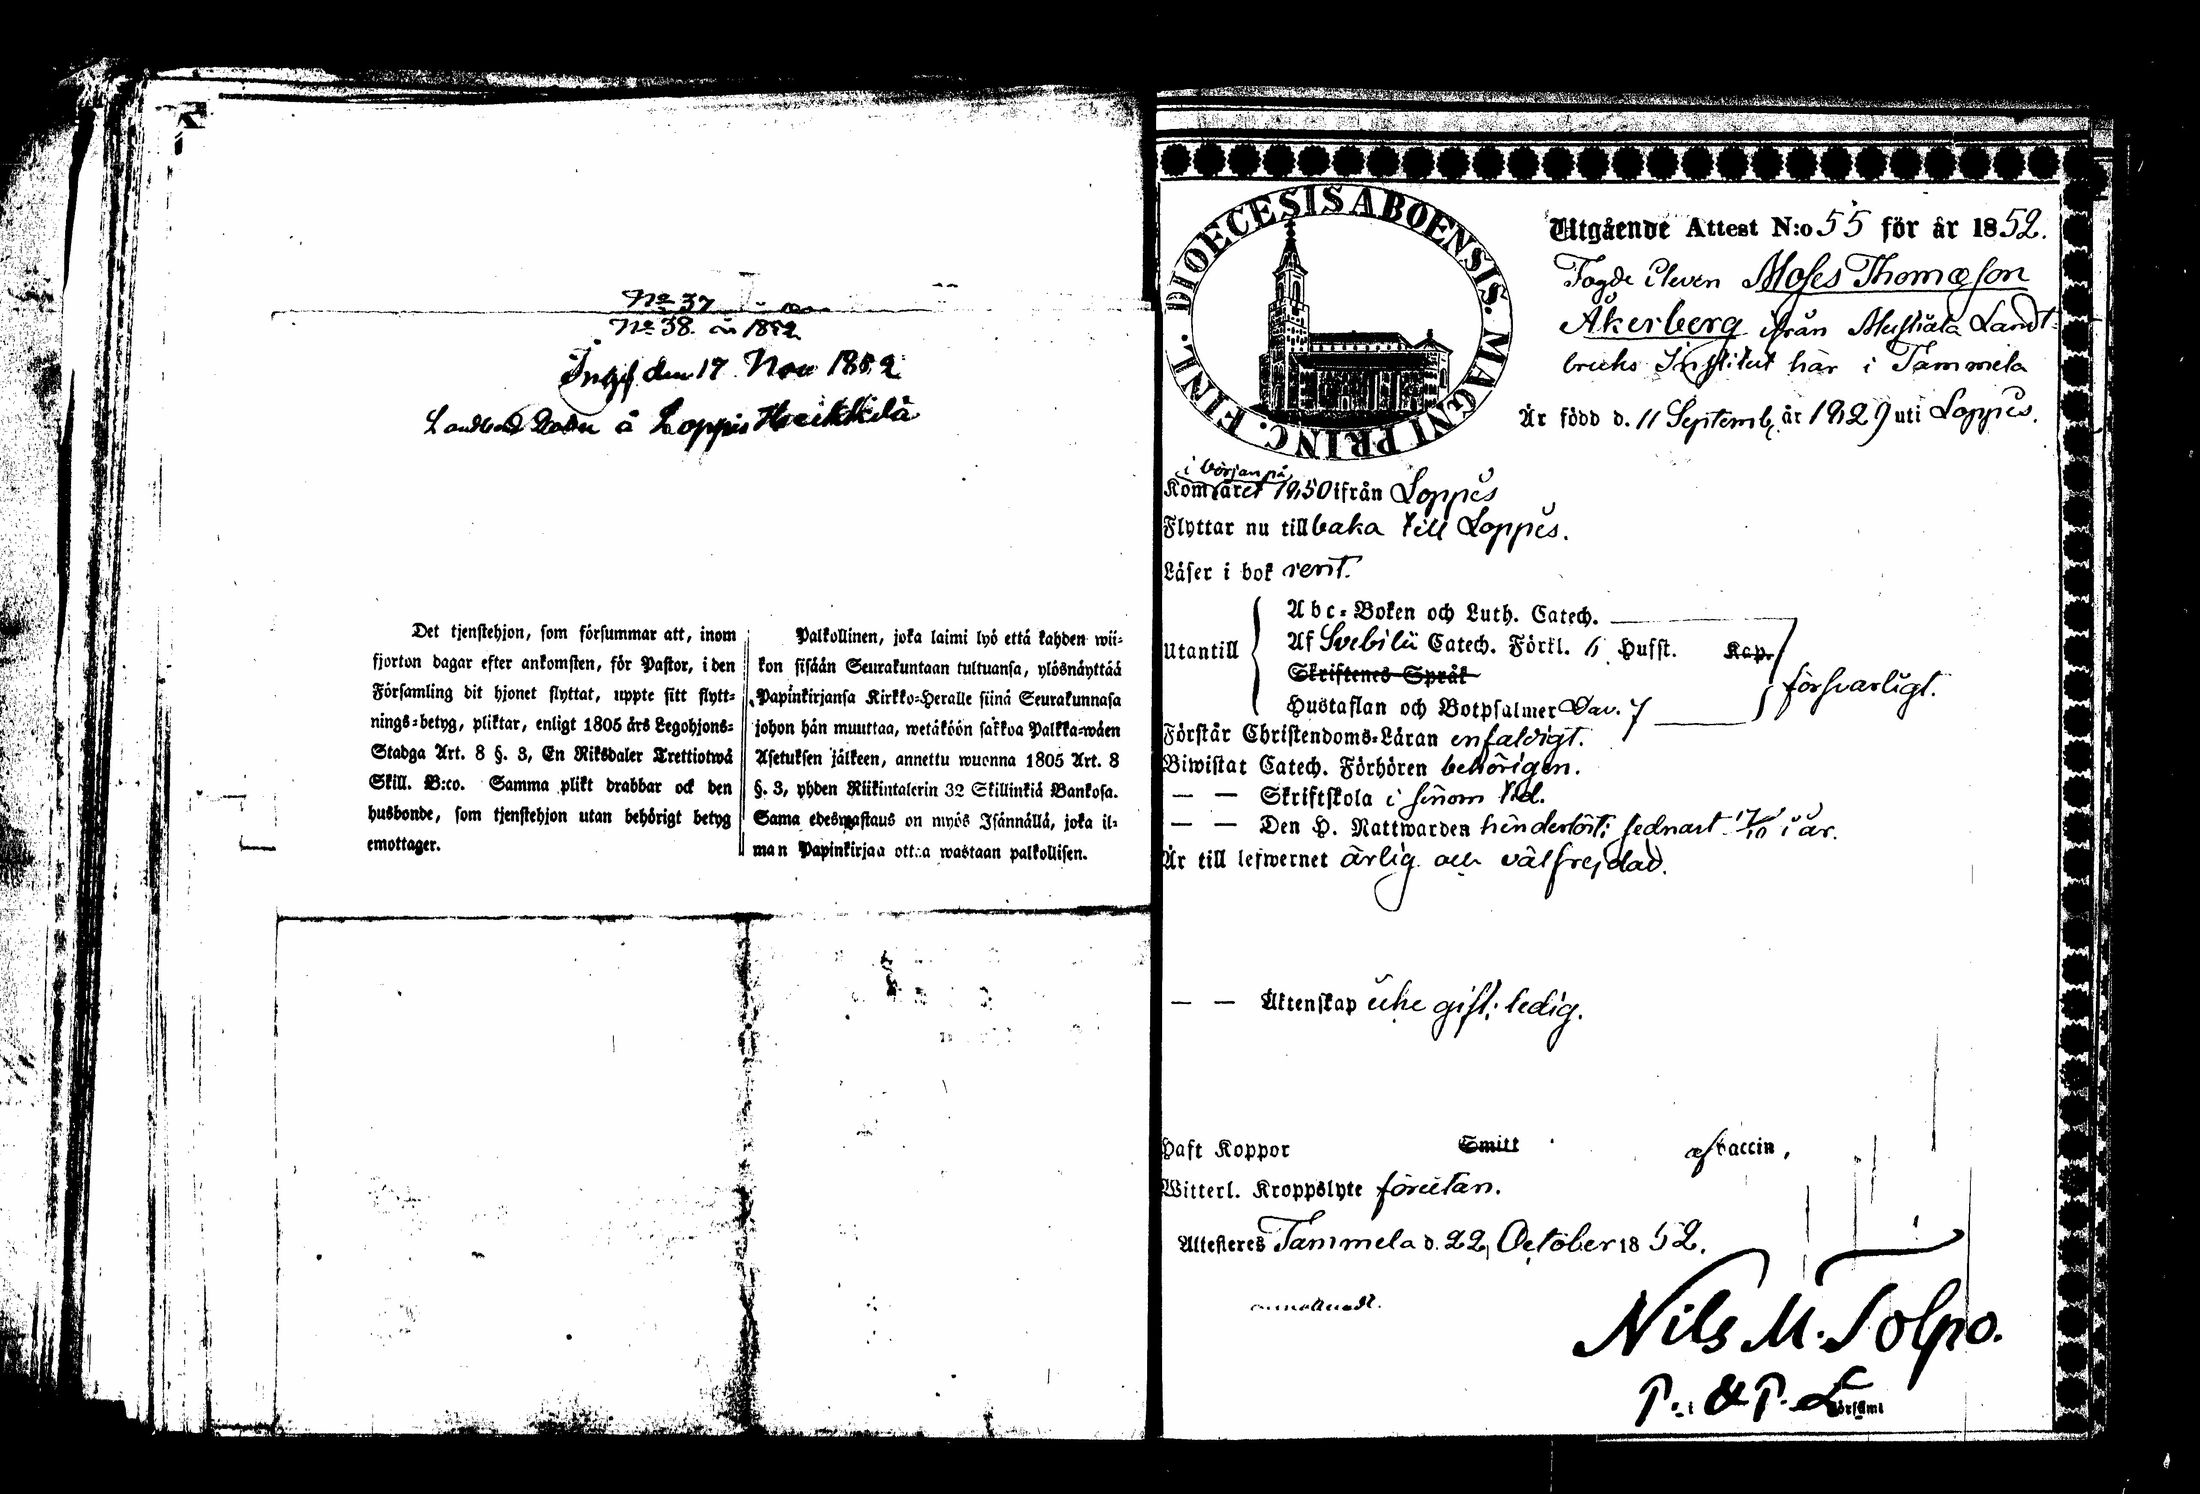 No 37
No 38. år 1852
den 17 Nov 1852
å Loppis Heikkilä
Det tjenstehjon, som försummar att, inom
fjorton dagar efter ankomsten, för Pastor, i den
Församling dit hjonet flyttat, uppte sitt flytt-
nings-betyg, pliktar, enligt 1805 års Legohjons-
Stadga Art. 8 §. 3, En Riksdaler Trettiotwå
Skill. B:co. Samma plikt drabbar ock den
husbonde, som tjenstehjon utan behörigt betyg
emottager.
Palkollinen, joka laimi lyö että kahden wii-
kon sisään Seurakuntaan tultuansa, ylösnäyttää
Papinkirjansa Kirkko-Herralle siinä Seurakunnasa
johon hän muuttaa, wetäköön sakkoa Palkka-wäen
Asetuksen jälkeen, annettu wuonna 1805 Art. 8
§. 3, yhden Riikintalerin 32 Skillinkiä Bankosa.
Sama edeswastaus on myös Isännällä, joka il-
man Papinkirjaa ottaa wastaan palkollisen.
DIOECESIS ABOENSIS. MAGNI PRINC. FINL.
Utgående Attest N:o 55 för år 1852.
Fogde Eleven Moses Thomæson
Åkerberg ifrån Mustiala Landt-
bruks Institut här i Tammela
Är född d. 11 Septemb. år 1829 uti Loppis.
i början på
Kom året 1850 ifrån Loppis
Flyttar nu tillbaka till Loppis.
Läser i bok rent.
Utantill
Abc-Boken och Luth. Catech.
Af Svebilii Catech. Förkl. 6 Hufst. Kap.
Skriftenes Språk
Hustaflan och Botpsalmer Dav. 7
försvarligt.
Förstår Christendoms-Läran enfaldigt.
Biwistat Catech. Förhören behörigen.
— — Skriftskola i sinom tid.
— — Den H. Nattwarden sednast 17/10 i år.
Är till lefwernet ärlig och välfrejdad.
— — Äktenskap icke gift; ledig.
Haft Koppor Smitt vaccin,
Witterl. Kroppslyte förutan.
Attesteres Tammela d. 22 October 1852.
Nils M. Tolpo.
P. i & P. L. Församl